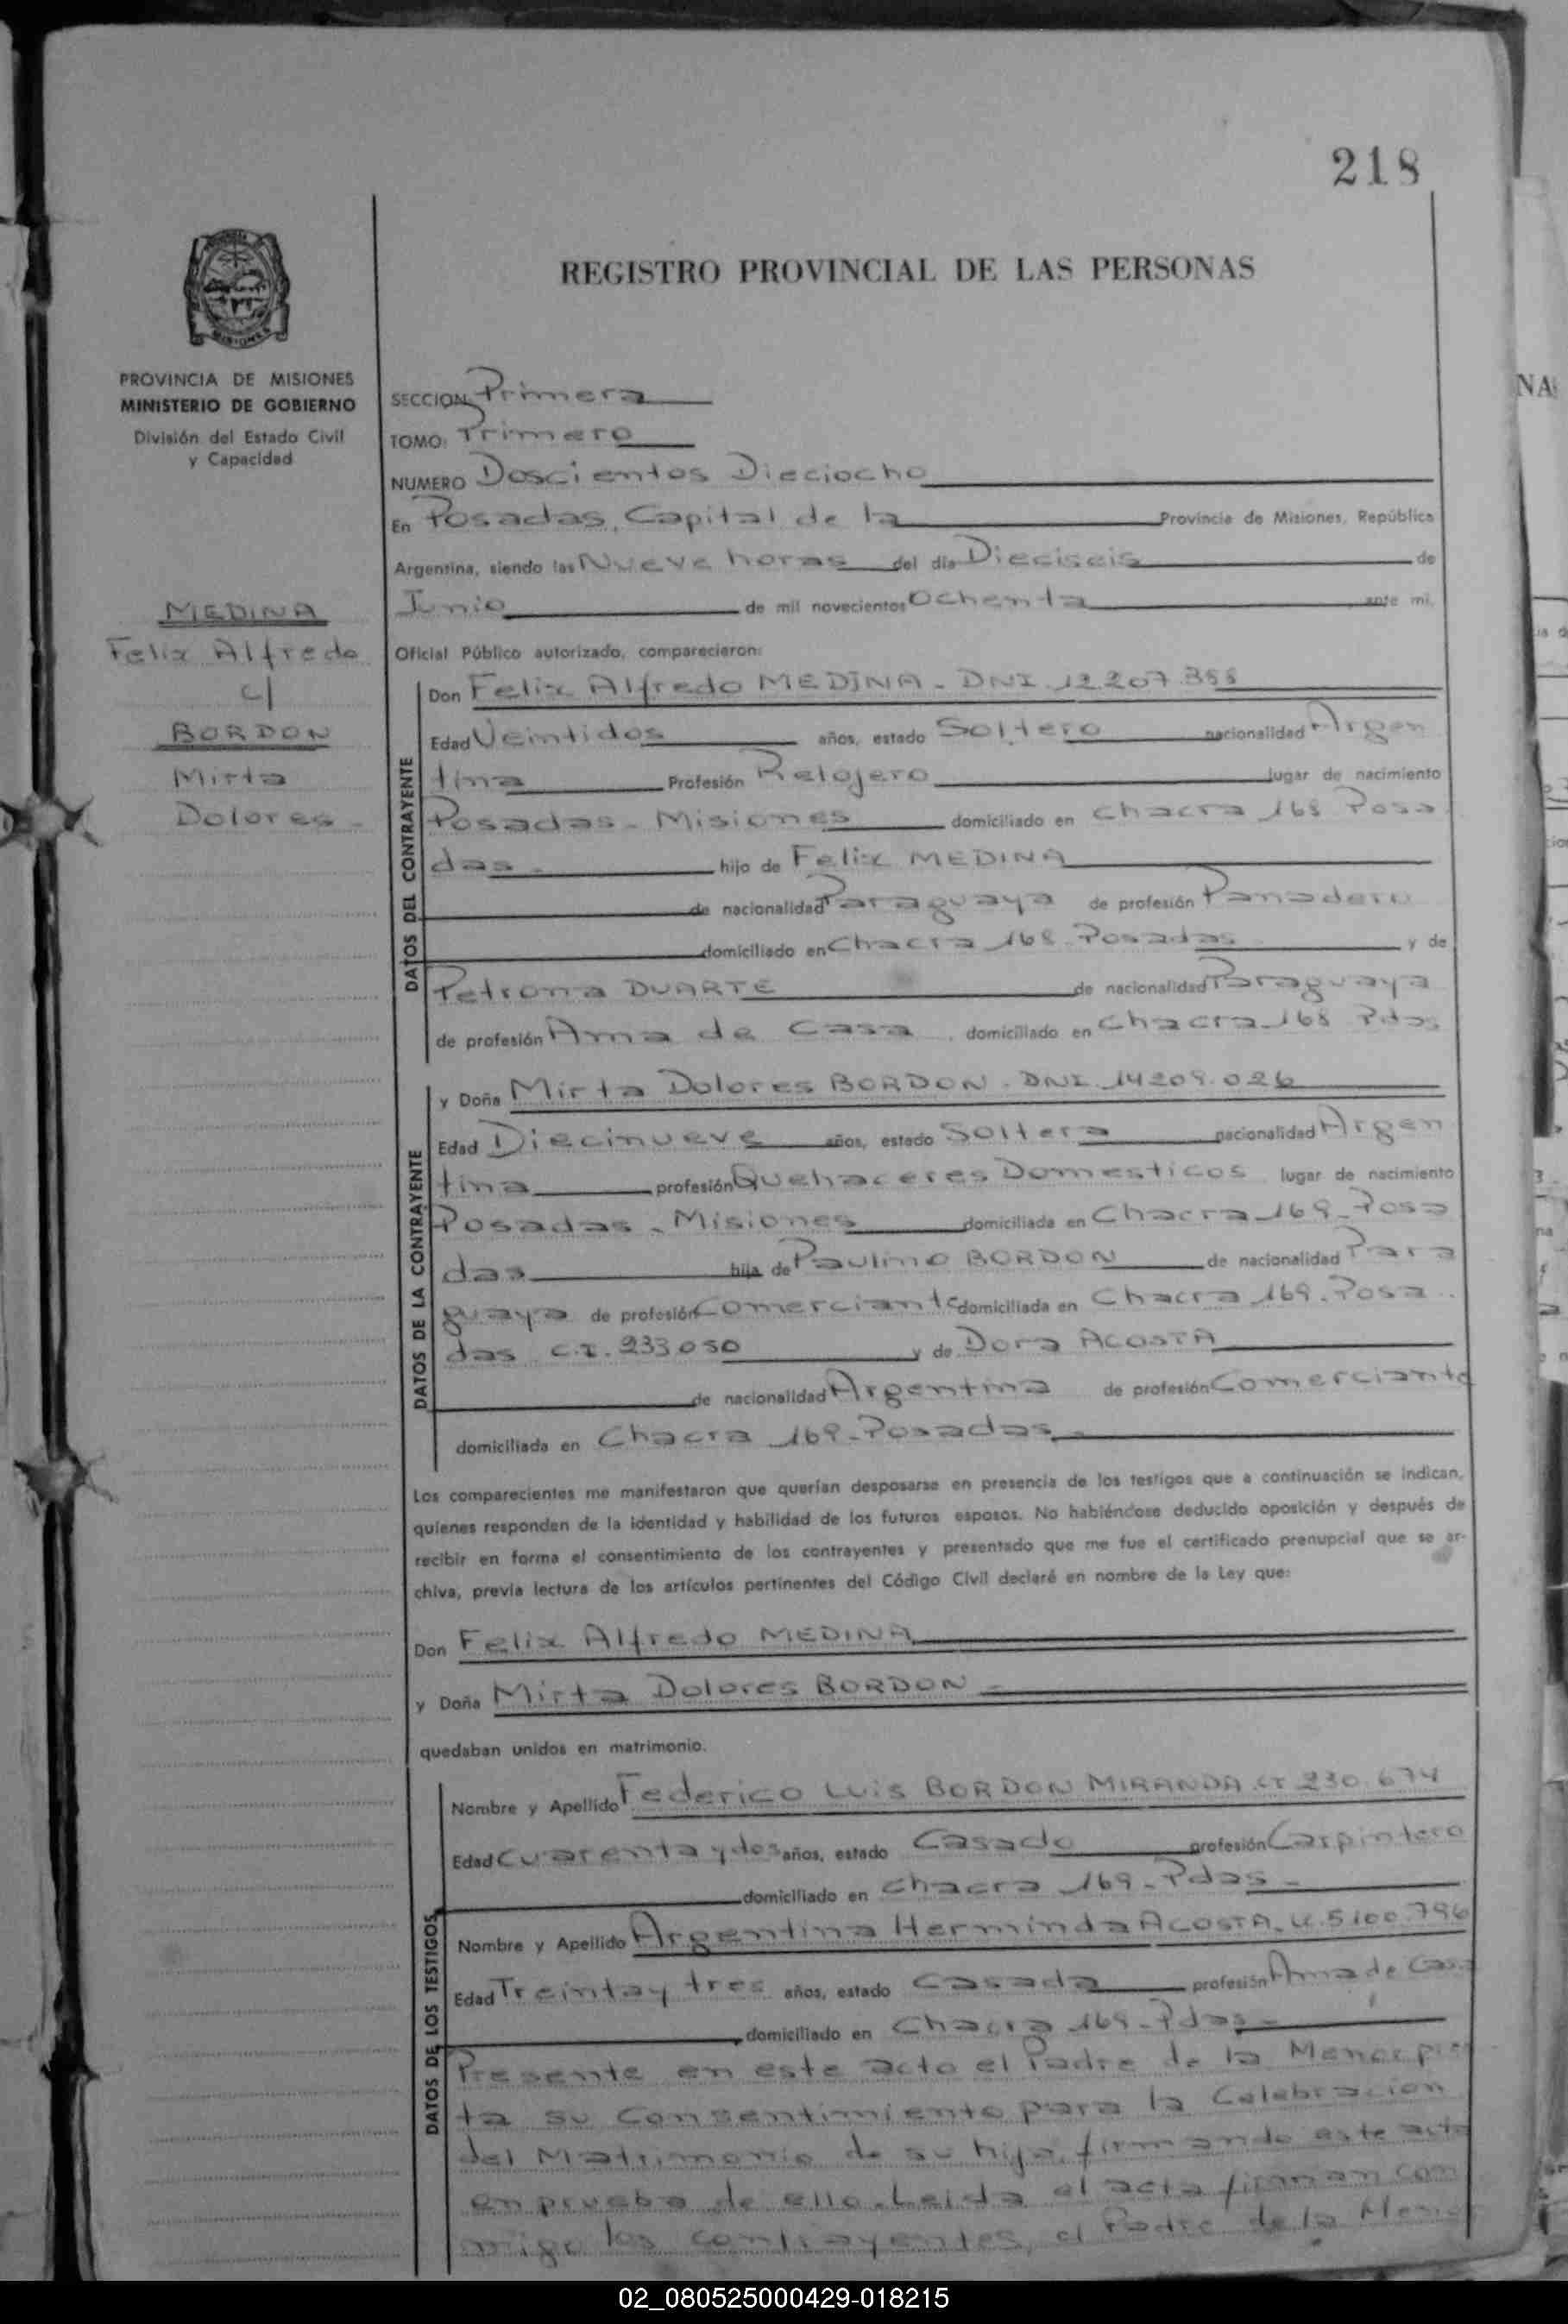 218
REGISTRO PROVINCIAL DE LAS PERSONAS
PROVINCIA DE MISIONES
MINISTERIO DE GOBIERNO
División del Estado Civil
y Capacidad
MEDINA
Felix Alfredo
c/
BORDON
Mirta
Dolores -
SECCION Primera
TOMO: Primero
NUMERO Doscientos Dieciocho
En Posadas, Capital de la Provincia de Misiones, República
Argentina, siendo las Nueve horas del día Dieciseis de
Junio de mil novecientos Ochenta ante mi,
Oficial Público autorizado, comparecieron:
DATOS DEL CONTRAYENTE
Don Felix Alfredo MEDINA - DNI
Edad Veintidos años, estado Soltero nacionalidad Argen
tina Profesión Relojero lugar de nacimiento
Posadas - Misiones domiciliado en Chacra 168 Posa
das - hijo de Felix MEDINA
de nacionalidad Paraguaya de profesión Panadero
domiciliado en Chacra 168 - Posadas y de
Petrona DUARTE de nacionalidad Paraguaya
de profesión Ama de Casa domiciliado en Chacra 168 Pdas
DATOS DE LA CONTRAYENTE
y Doña Mirta Dolores BORDON - DNI 14.209.026
Edad Diecinueve años, estado Soltera nacionalidad Argen
tina profesión Quehaceres Domesticos lugar de nacimiento
Posadas - Misiones domiciliada en Chacra 169 - Posa
das hija de Paulino BORDON de nacionalidad Para
guaya de profesión Comerciante domiciliada en Chacra 169 - Posa
das C.I. 233.050 y de Dora ACOSTA
de nacionalidad Argentina de profesión Comerciante
domiciliada en Chacra 169 - Posadas -
Los comparecientes me manifestaron que querían desposarse en presencia de los testigos que a continuación se indican,
quienes responden de la identidad y habilidad de los futuros esposos. No habiéndose deducido oposición y después de
recibir en forma el consentimiento de los contrayentes y presentado que me fue el certificado prenupcial que se ar-
chiva, previa lectura de los artículos pertinentes del Código Civil declaré en nombre de la Ley que:
Don Felix Alfredo MEDINA
y Doña Mirta Dolores BORDON -
quedaban unidos en matrimonio.
DATOS DE LOS TESTIGOS
Nombre y Apellido Federico Luis BORDON MIRANDA CI 230.674
Edad Cuarenta y dos años, estado Casado profesión Carpintero
domiciliado en Chacra 169 - Pdas -
Nombre y Apellido Argentina Herminda ACOSTA - LC 5.100.796
Edad Treinta y tres años, estado Casada profesión Ama de Casa
domiciliado en Chacra 169 - Pdas -
Presente en este acto el Padre de la Menor pres
ta su Consentimiento para la Celebracion
del Matrimonio de su hija, firmando este acto
en prueba de ello. Leida el acta firman con
migo los contrayentes, el Padre de la Menor
02_080525000429-018215